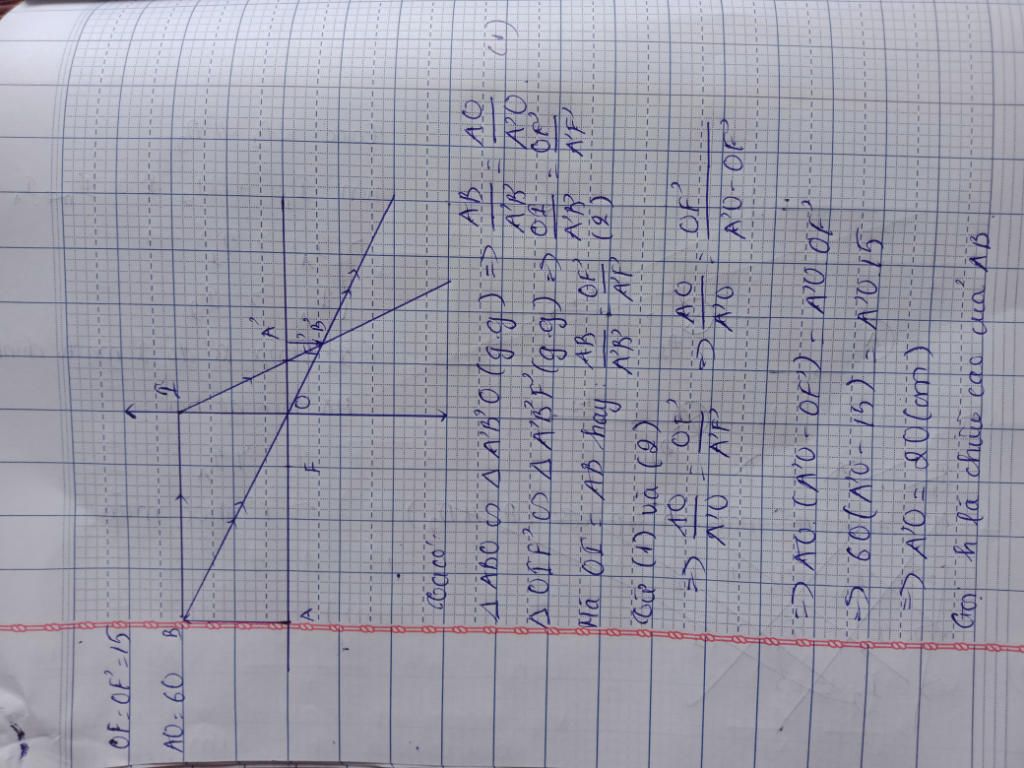 OF = OF' = 15
AO = 60
B
I
A
F
O
A'
B'
Ta có:
Δ ABO ∽ Δ A'B'O (g.g) => AB/A'B' = AO/A'O (1)
Δ OIF' ∽ Δ A'B'F' (g.g) => OI/A'B' = OF'/A'F'
Mà OI = AB hay AB/A'B' = OF'/A'F' (2)
Từ (1) và (2)
=> AO/A'O = OF'/A'F' => AO/A'O = OF'/A'O - OF'
=> AO. (A'O - OF') = A'O. OF'
=> 60(A'O - 15) = A'O 15
=> A'O = 20(cm)
Gọi h là chiều cao của AB